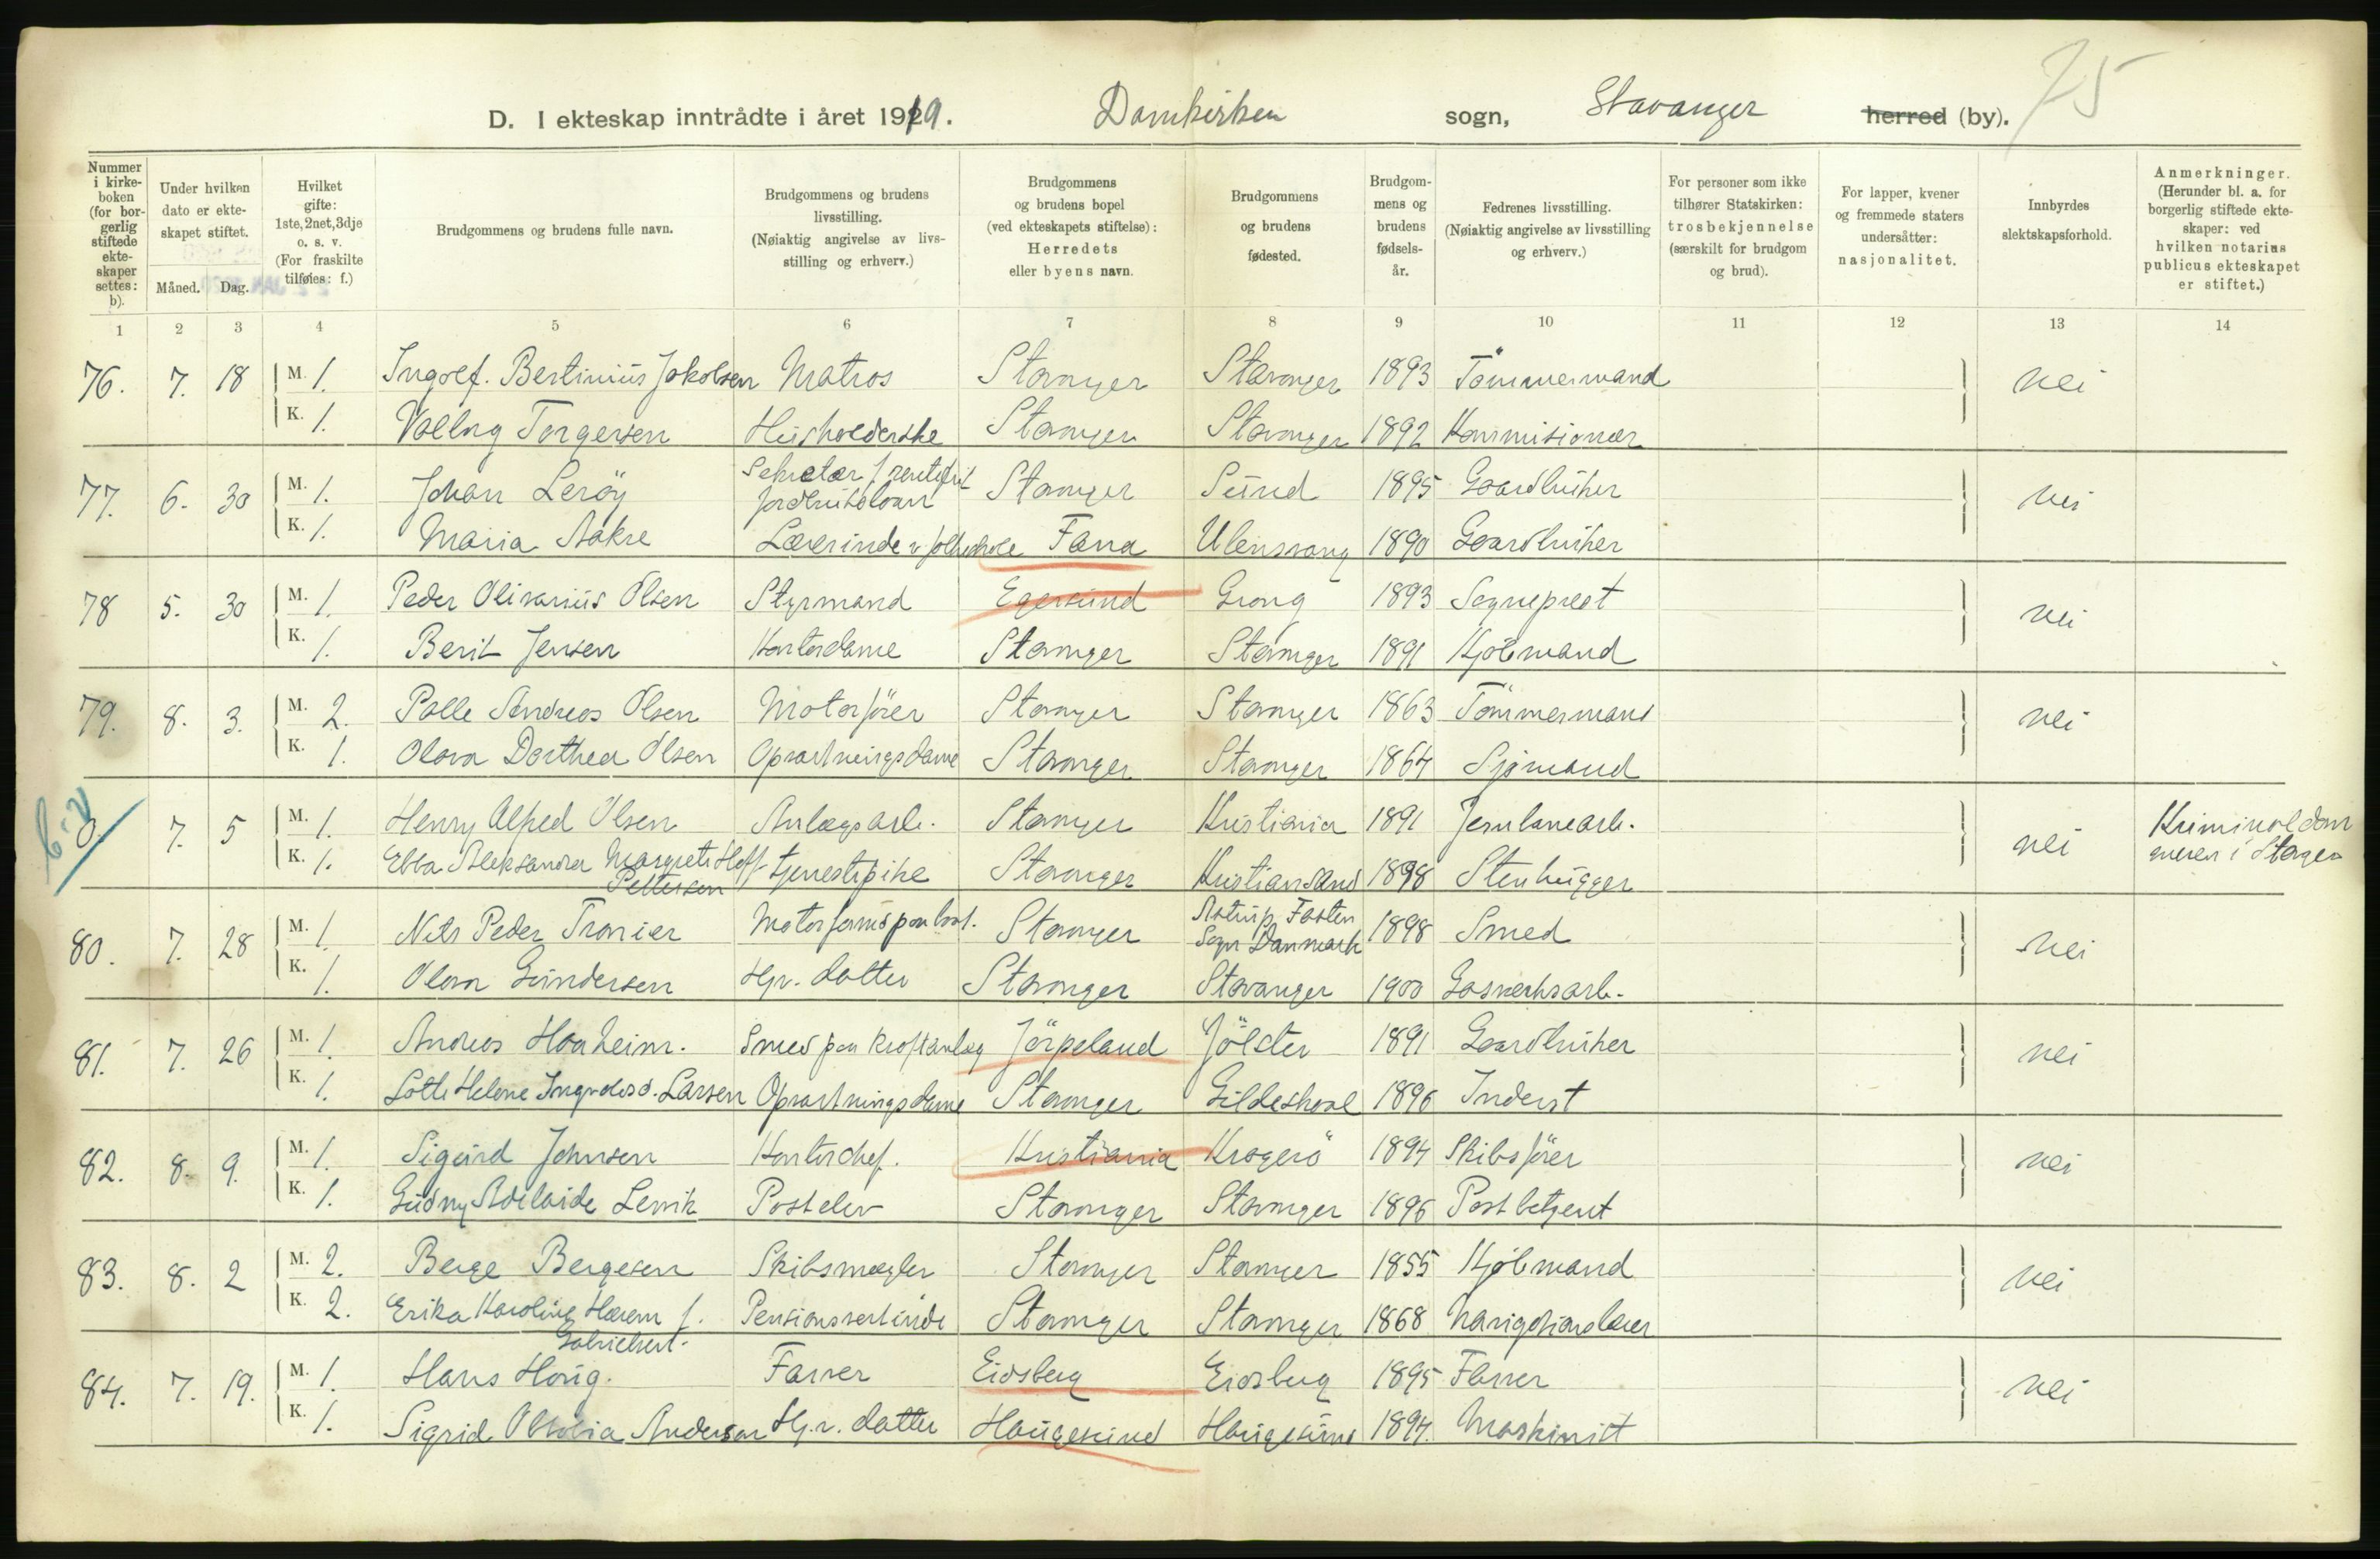 75
D. I ekteskap inntrådte i året 1919. Domkirken sogn, Stavanger herred (by).
Nummer i kirkeboken (for borgerlig stiftede ekteskaper settes: b).
Under hvilken dato er ekteskapet stiftet. Måned. Dag.
Hvilket gifte: 1ste, 2net, 3dje o. s. v. (For fraskilte tilføies: f.)
Brudgommens og brudens fulle navn.
Brudgommens og brudens livsstilling. (Nøiaktig angivelse av livsstilling og erhverv.)
Brudgommens og brudens bopel (ved ekteskapets stiftelse): Herredets eller byens navn.
Brudgommens og brudens fødested.
Brudgommens og brudens fødselsår.
Fedrenes livsstilling. (Nøiaktig angivelse av livsstilling og erhverv.)
For personer som ikke tilhører Statskirken: trosbekjennelse (særskilt for brudgom og brud).
For lapper, kvener og fremmede staters undersåtter: nasjonalitet.
Innbyrdes slektskapsforhold.
Anmerkninger. (Herunder bl. a. for borgerlig stiftede ekteskaper: ved hvilken notarius publicus ekteskapet er stiftet.)
1 2 3 4 5 6 7 8 9 10 11 12 13 14
76. 7. 18 M. 1. Ingolf. Bertinius Jakobsen Matros Stavanger Stavanger 1893 Tömmermand nei
K. 1. Valborg Torgersen Husholderske Stavanger Stavanger 1892 Kommisionær
77. 6. 30 M. 1. Johan Leröy Sekretær Stavanger Sund 1895 Gaardbruker nei
K. 1. Maria Aakre Lærerinde v folkeskole Fana Ulensvang 1890 Gaardbruker
78 5. 30 M. 1. Peder Olivarius Olsen Styrmand Egersund Grong 1893 Sogneprest nei
K. 1. Berit Jensen Kontordame Stavanger Stavanger 1891 Kjöbmand
79. 8. 3. M. 2. Palle Andreas Olsen Motorförer Stavanger Stavanger 1863 Tömmermand nei
K. 1. Olava Dorthea Olsen Opvartningsdame Stavanger Stavanger 1864 Sjömand
0. 7. 5 M. 1. Henry Alfred Olsen Anlægsarb. Stavanger Kristiania 1891 Jernbanearb. nei Kriminaldom
K. 1. Ebba Aleksandra Margrete Hoff Pettersen tjenestpike Stavanger Kristiansand 1898 Stenhugger
80. 7. 28 M. 1. Nils Peder Tranier Stavanger Astrup Sogn Danmark 1898 Smed nei
K. 1. Olava Gundersen Hjv. datter Stavanger Stavanger 1900 Gasverksarb.
81. 7. 26 M. 1. Andreas Haaheim. Smed paa kraftanlæg Jörpeland Jölster 1891 Gaardbruker nei
K. 1. Lotte Helene Larsen Opvartningsdame Stavanger Gildeskaal 1896 Inderst
82. 8. 9. M. 1. Sigurd Johnsen Kontorchef. Kristiania Kragerö 1894 Skibsförer nei
K. 1. Gudny Adelaide Lervik Postelev Stavanger Stavanger 1896 Postbetjent
83. 8. 2 M. 2. Berge Bergesen Skibsmægler Stavanger Stavanger 1855 Kjöbmand nei
K. 2. Erika Karoline Hærem f. Gabrielsen. Pensionsvertinde Stavanger Stavanger 1868 Navigationslærer
84. 7. 19. M. 1. Hans Haug. Farver Eidsberg Eidsberg 1895 Farver nei
K. 1. Sigrid Andersen Hj. v. datter Haugesund Haugesund 1894. Maskinist